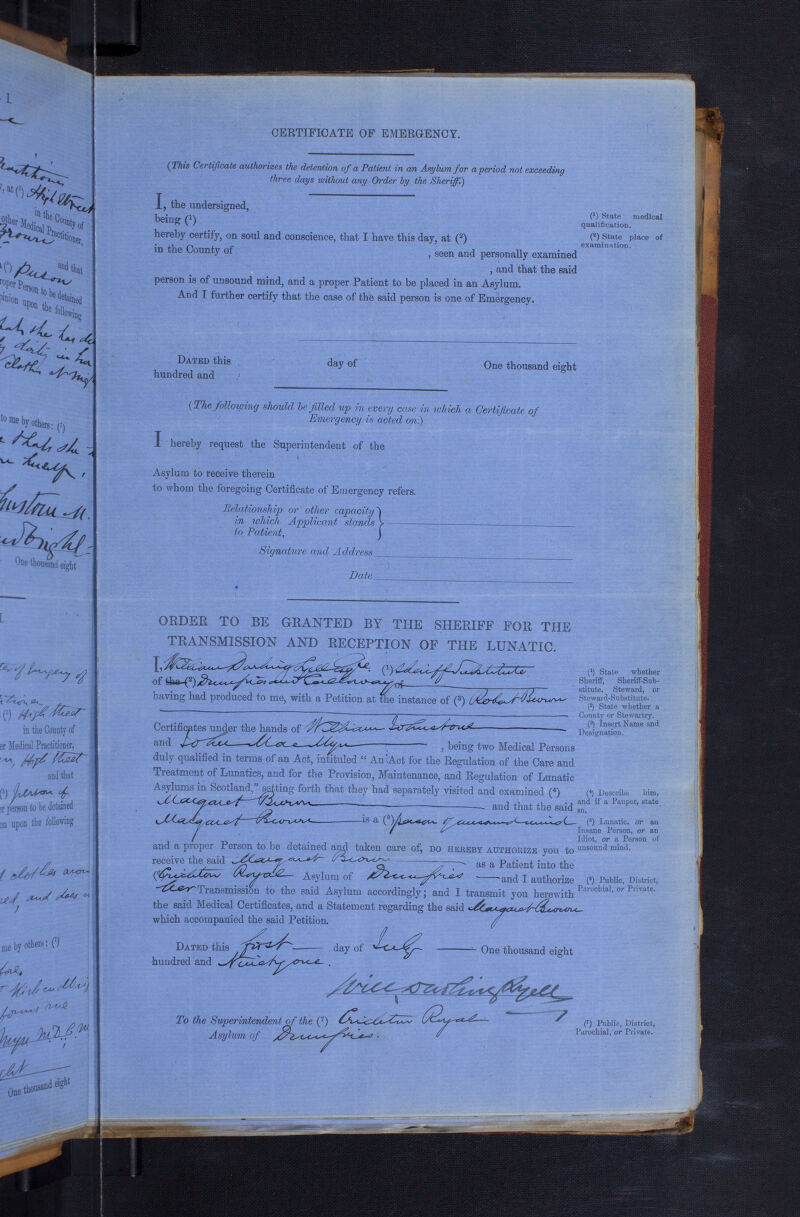 CERTIFICATE OF EMERGENCY.
(This Certificate authorizes the detention of a Patient in an Asylum for a period not exceeding
three days without any Order by the Sheriff.)
I, the undersigned,
being (1)
hereby certify, on soul and conscience, that I have this day, at (2)
in the County of , seen and personally examined
, and that the said
person is of unsound mind, and a proper Patient to be placed in an Asylum.
And I further certify that the case of the said person is one of Emergency.
(1) State medical
qualification.
(2) State place of
examination.
DATED this day of One thousand eight
hundred and
(The following should be filled up in every case in which a Certificate of
Emergency is acted on:)
I hereby request the Superintendent of the
Asylum to receive therein
to whom the foregoing Certificate of Emergency refers.
Relationship or other capacity
in which Applicant stands
to Patient,
Signature and Address
Date
ORDER TO BE GRANTED BY THE SHERIFF FOR THE
TRANSMISSION AND RECEPTION OF THE LUNATIC.
I, William Darling Esqre. (1) Sheriff Substitute
of the (2) Dumfries and Galloway
having had produced to me, with a Petition at the instance of (3) Robert Brown
Certificates under the hands of William Johnstone
and John MacMyn , being two Medical Persons
duly qualified in terms of an Act, intituled "An Act for the Regulation of the Care and
Treatment of Lunatics, and for the Provision, Maintenance, and Regulation of Lunatic
Asylums in Scotland," setting forth that they had separately visited and examined (4)
Margaret Brown and that the said
Margaret Brown is a (5) person of unsound mind
and a proper Person to be detained and taken care of, DO HEREBY AUTHORIZE you to
receive the said Margaret Brown as a Patient into the
(6) Crichton Royal Asylum of Dumfries and I authorize
her Transmission to the said Asylum accordingly; and I transmit you herewith
the said Medical Certificates, and a Statement regarding the said Margaret Brown
which accompanied the said Petition.
(1) State whether
Sheriff, Sheriff-Sub-
stitute, Steward, or
Steward-Substitute.
(2) State whether a
County or Stewartry.
(3) Insert Name and
Designation.
(4) Describe him,
and if a Pauper, state
so.
(5) Lunatic, or an
Insane Person, or an
Idiot, or a Person of
unsound mind.
(6) Public, District,
Parochial, or Private.
DATED this first day of July One thousand eight
hundred and Ninety one.
Will Darling
To the Superintendent of the (7) Crichton Royal
Asylum of Dumfries.
(7) Public, District,
Parochial, or Private.
at (2) High Street
in the County of
other Medical Practitioner,
and that
Person
Person to be detained
opinion upon the following
that she has
clothes at
to me by others: (7)
that she
herself
One thousand eight
(2) High Street
in the County of
Medical Practitioner,
High Street
and that
person of
person to be detained
upon the following
clothes
and does
me by others: (7)
One thousand eight